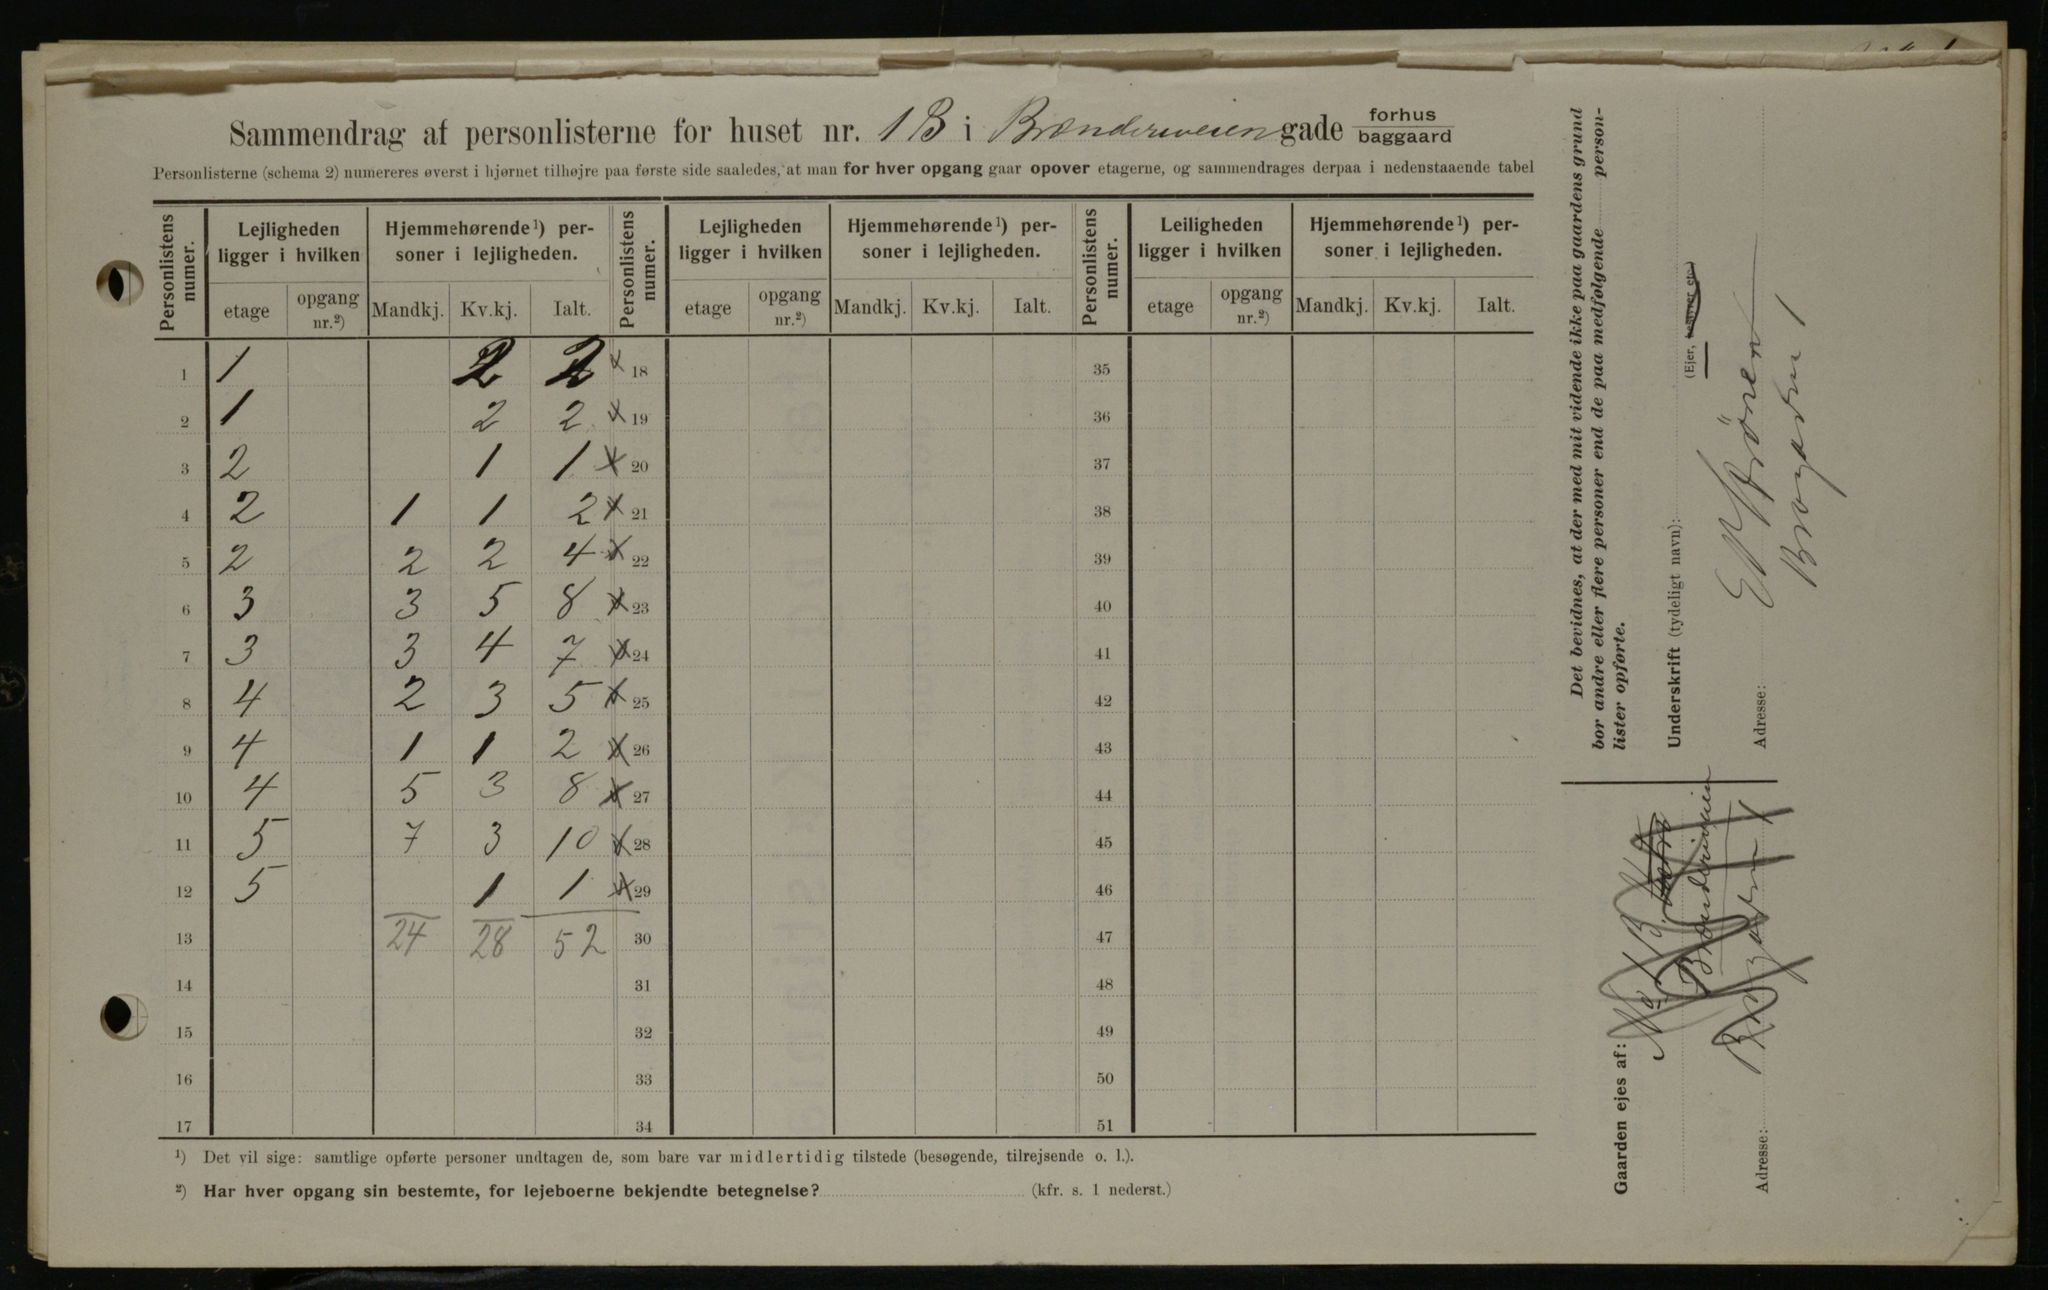 Sammendrag af personlisterne for huset nr. 1B i Brænderiveien gade forhus baggaard
Personlisterne (schema 2) numereres øverst i hjørnet tilhøjre paa første side saaledes, at man for hver opgang gaar opover etagerne, og sammendrages derpaa i nedenstaaende tabel
Personlistens numer. Lejligheden ligger i hvilken Hjemmehørende¹) personer i lejligheden. Personlistens numer. Lejligheden ligger i hvilken Hjemmehørende¹) personer i lejligheden. Personlistens numer. Leiligheden ligger i hvilken Hjemmehørende¹) personer i lejligheden.
etage opgang nr.²) Mandkj. Kv.kj. Ialt. etage opgang nr.²) Mandkj. Kv.kj. Ialt. etage opgang nr.²) Mandkj. Kv.kj. Ialt.
1 1 2 2 x 18 35
2 1 2 2 x 19 36
3 2 1 1 x 20 37
4 2 1 1 2 x 21 38
5 2 2 2 4 x 22 39
6 3 3 5 8 x 23 40
7 3 3 4 7 x 24 41
8 4 2 3 5 x 25 42
9 4 1 1 2 x 26 43
10 4 5 3 8 x 27 44
11 5 7 3 10 x 28 45
12 5 1 1 x 29 46
13 24 28 52 30 47
14 31 48
15 32 49
16 33 50
17 34 51
¹) Det vil sige: samtlige opførte personer undtagen de, som bare var midlertidig tilstede (besøgende, tilrejsende o. l.).
²) Har hver opgang sin bestemte, for lejeboerne bekjendte betegnelse? (kfr. s. 1 nederst.)
Det bevidnes, at der med mit vidende ikke paa gaardens grund
bor andre eller flere personer end de paa medfølgende person-
lister opførte.
Underskrift (tydeligt navn):
(Ejer, bestyrer etc.)
Adresse: Brogaden 1
Gaarden ejes af: No 1 B
Brænderiveien
Adresse: Brogaden 1